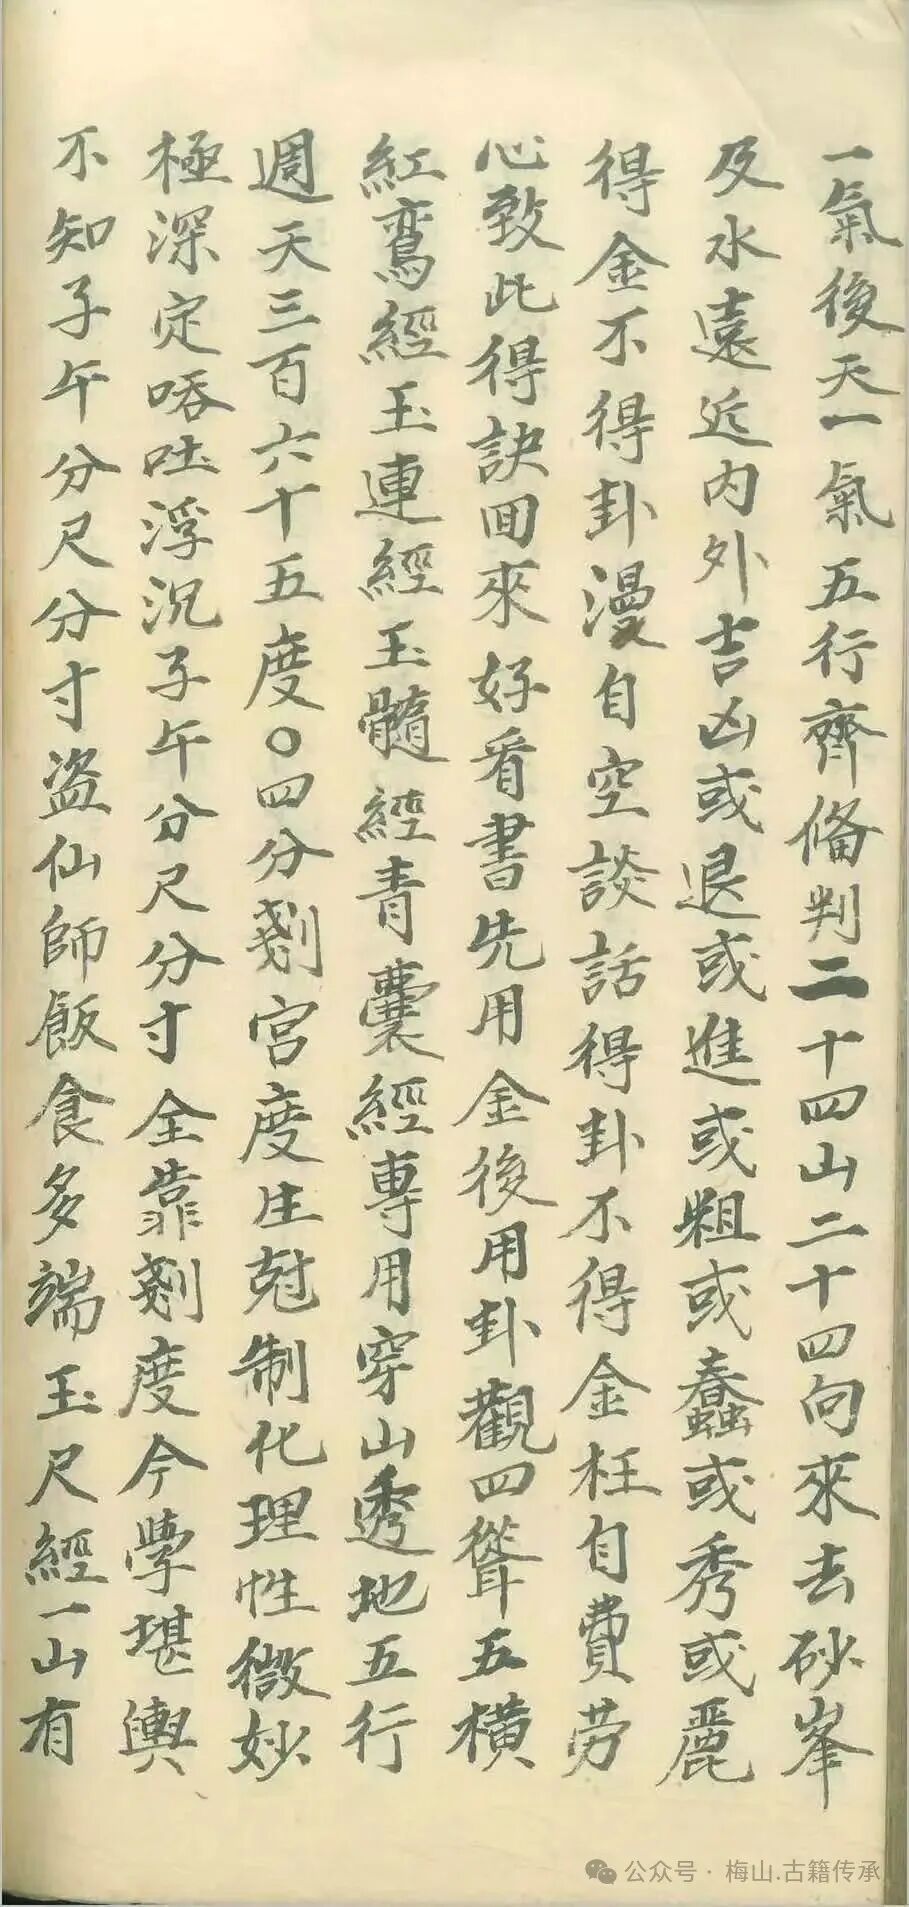 一氣後天一氣五行齊俻判二十四山二十四向來去砂峯
及水遠近内外吉凶或退或進或粗或蠢或秀或麗
得金不得卦漫自空談話得卦不得金枉自費劳
心致此得訣囬來好看書先用金後用卦觀四聳五横
紅鸞經玉連經玉髓經青囊經專用穿山透地五行
週天三百六十五度〇四分剗宫度生尅制化理性微妙
極深定吞吐浮沉子午分尺分寸全靠剗度今學堪輿
不知子午分尺分寸盗仙師飯食多端玉尺經一山有
公众号·梅山.古籍传承